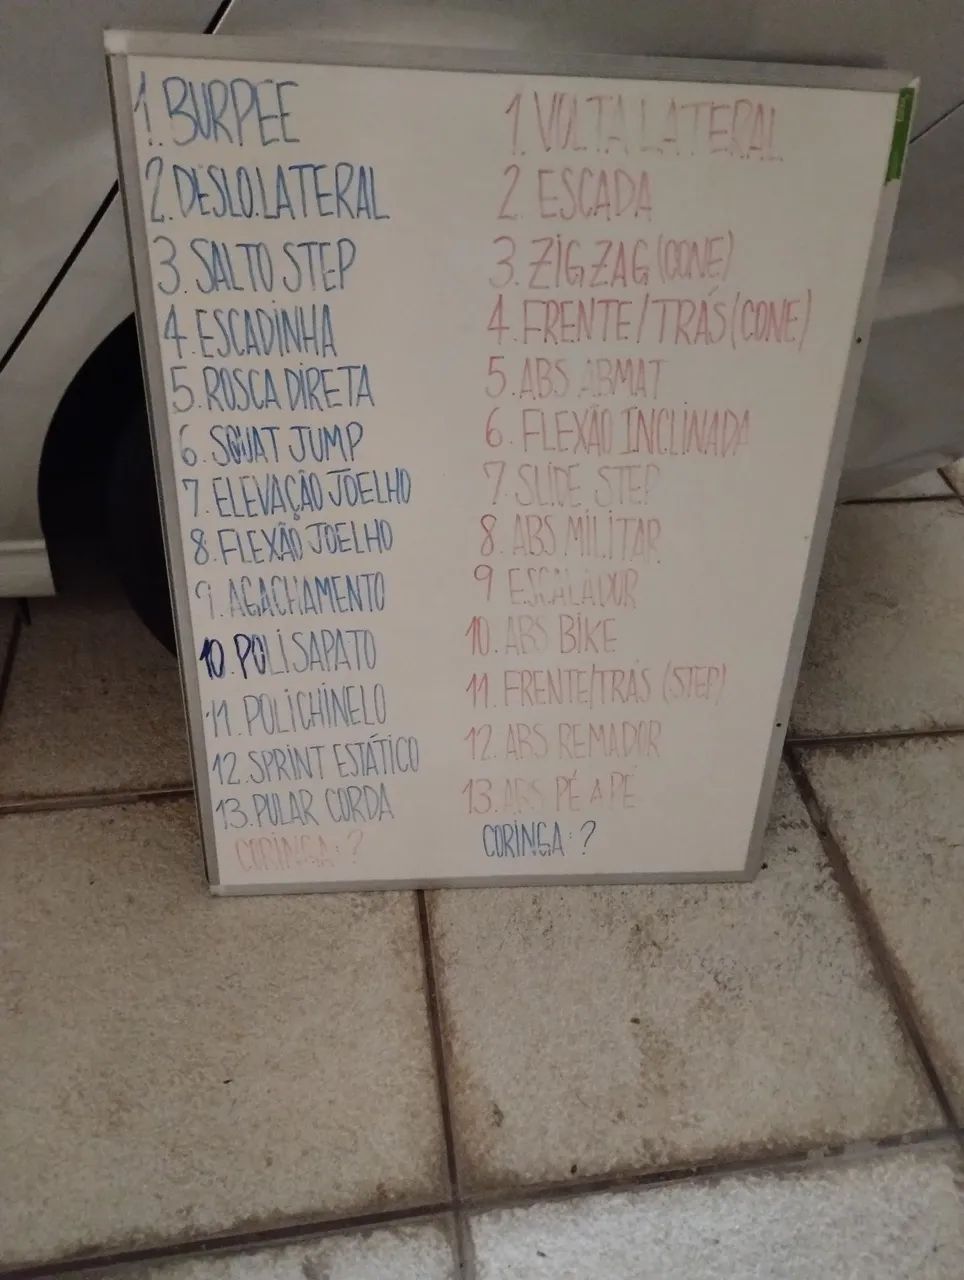 1. BURPEE
2. DESLO. LATERAL
3. SALTO STEP
4. ESCADINHA
5. ROSCA DIRETA
6. SQUAT JUMP
7. ELEVAÇÃO JOELHO
8. FLEXÃO JOELHO
9. AGACHAMENTO
10. POLISAPATO
11. POLICHINELO
12. SPRINT ESTÁTICO
13. PULAR CORDA
CORINGA: ?
1. VOLTA LATERAL
2. ESCADA
3. ZIG ZAG (CONE)
4. FRENTE/TRÁS (CONE)
5. ABS ABMAT
6. FLEXÃO INCLINADA
7. SLIDE STEP
8. ABS MILITAR
9 ESCALADOR
10. ABS BIKE
11. FRENTE/TRÁS (STEP)
12. ABS REMADOR
13. ABS PÉ A PÉ
CORINGA: ?